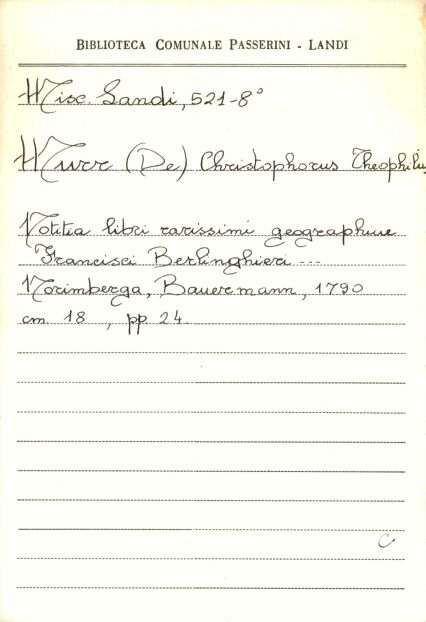 BIBLIOTECA COMUNALE PASSERINI - LANDI
Misc. Landi, 521-8°
Murr (De) Christophorus Theophilus
Notitia libri rarissimi geographiae
Francisci Berlinghieri ---
Norimberga, Bauermann, 1790
cm 18, pp 24
C